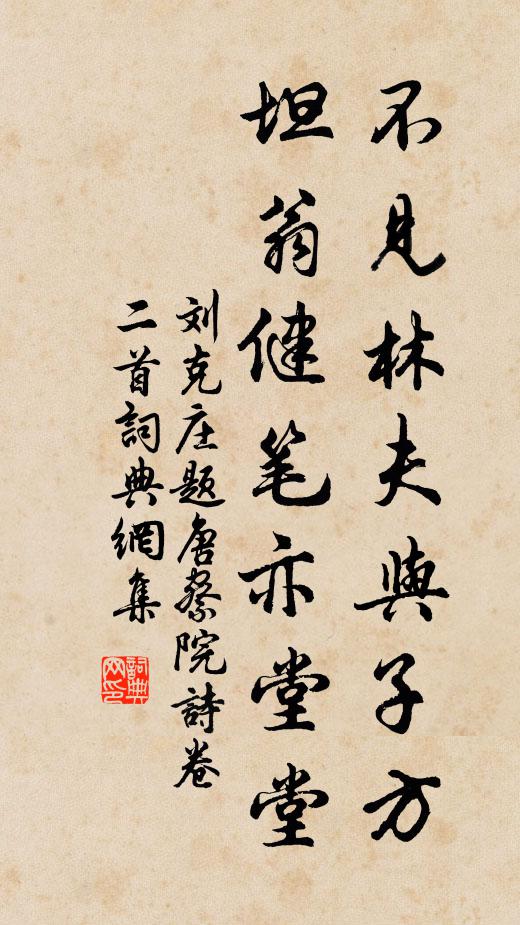 不见林夫與子方
坦翁健笔亦堂堂
刘克庄题唐察院詩卷
二首詞典網集
詞典网印